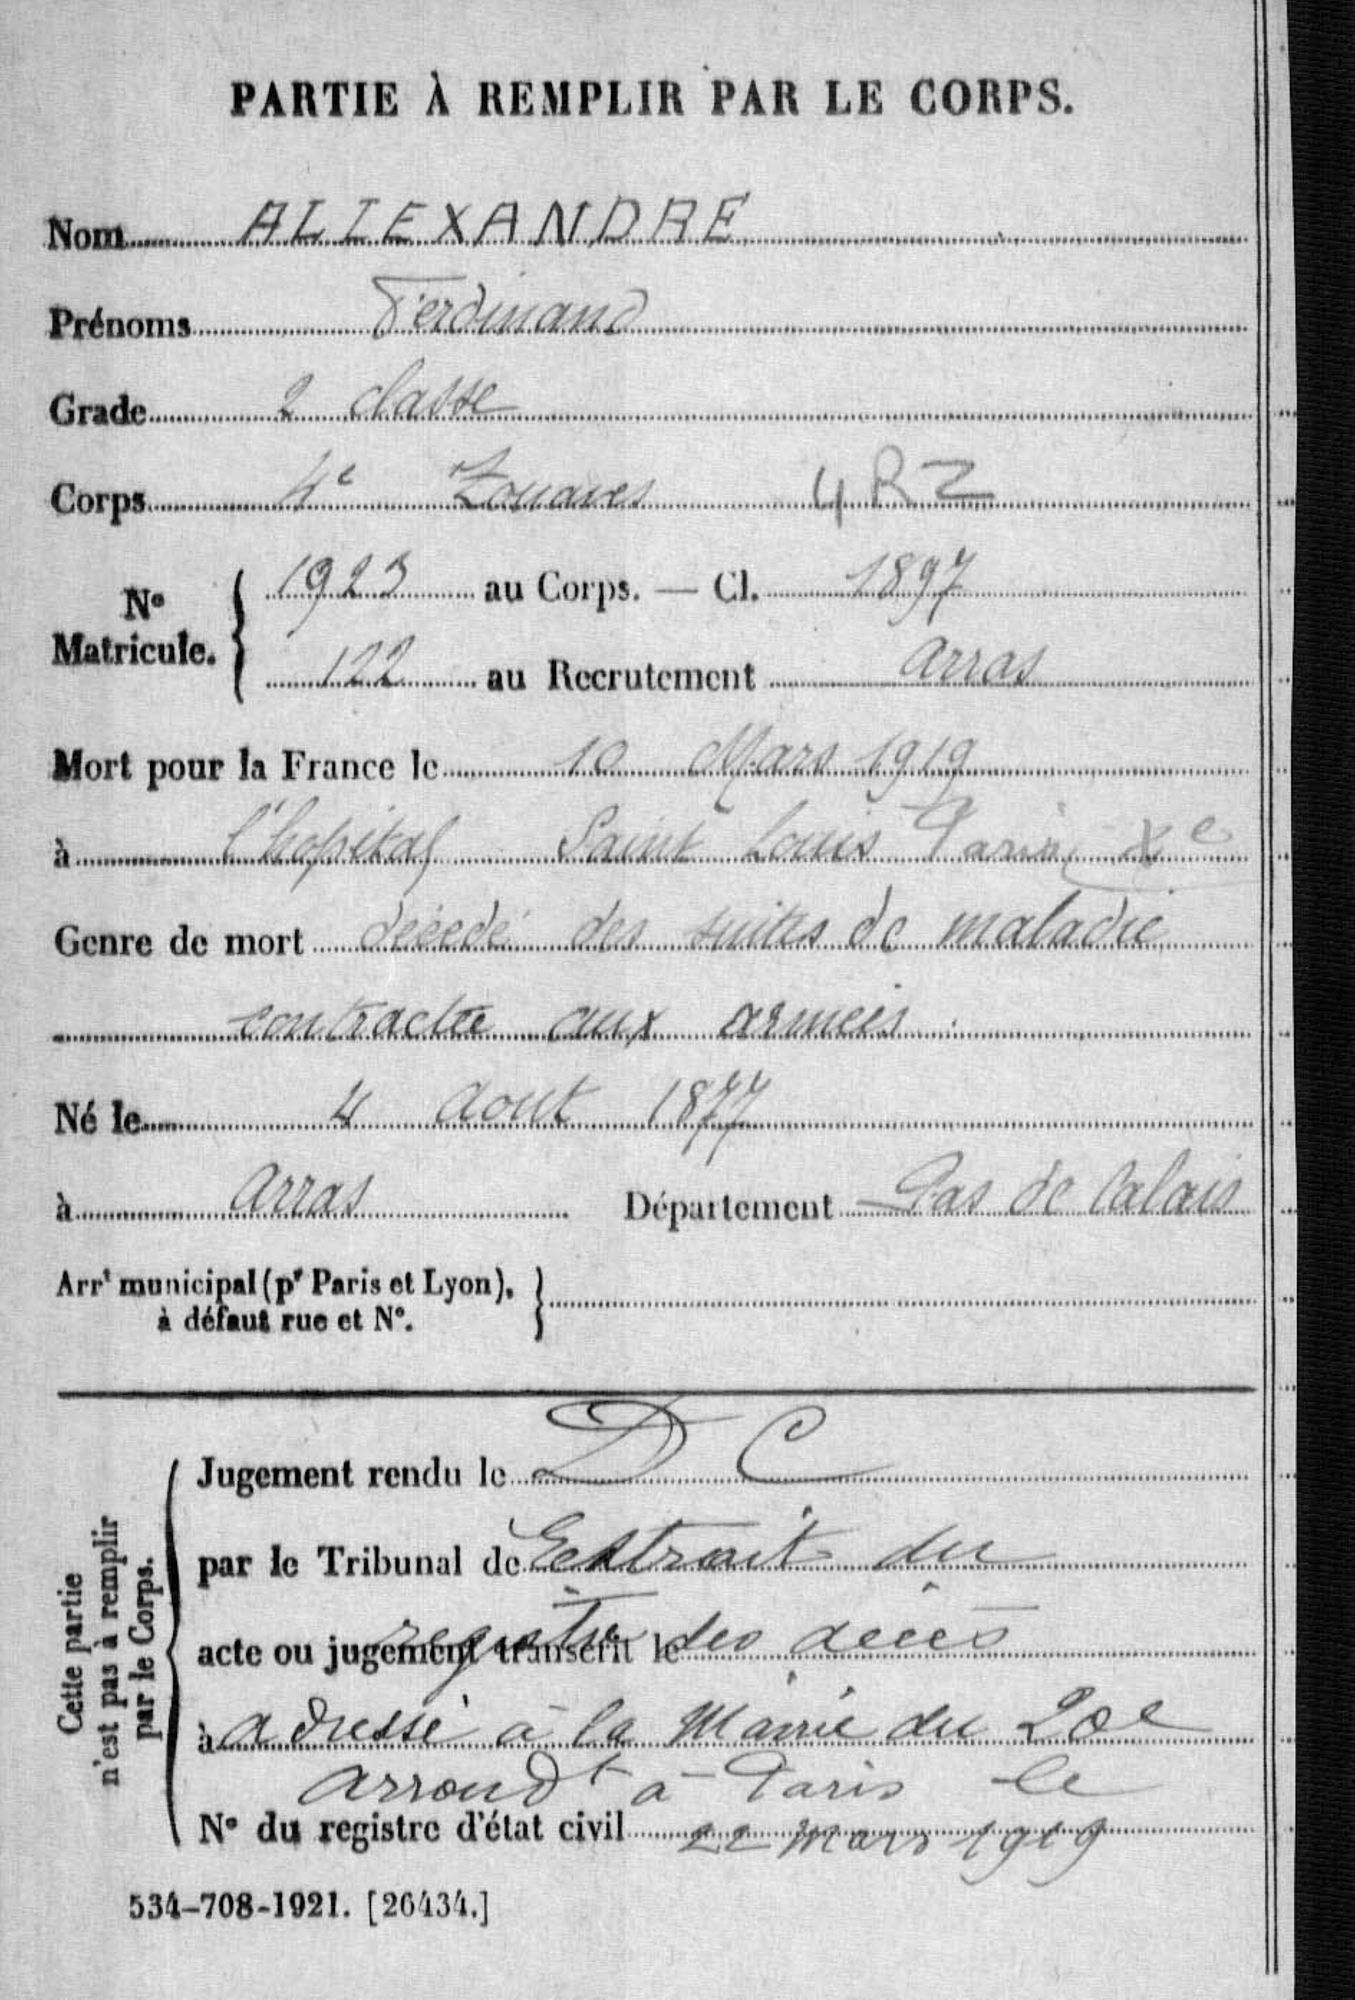 PARTIE À REMPLIR PAR LE CORPS.
Nom ALLEXANDRE
Prénoms Ferdinand
Grade 2 classe
Corps 4e Zouaves 4 RZ
No Matricule. { 1923 au Corps. — Cl. 1897
122 au Recrutement Arras
Mort pour la France le 10 Mars 1919
à l'hopital Saint Louis Paris Xe
Genre de mort décédé des suites de maladie
contractée aux armées
Né le 4 Aout 1877
à Arras Département Pas de Calais
Arrt municipal (pr Paris et Lyon), à défaut rue et No. }
Cette partie n'est pas à remplir par le Corps. {
Jugement rendu le D C
par le Tribunal de Extrait du
acte ou jugement transcrit le registre des décès
à adressé à la Mairie du 20e
arrondt à Paris le
No du registre d'état civil 22 Mars 1919
534-708-1921. [26434.]